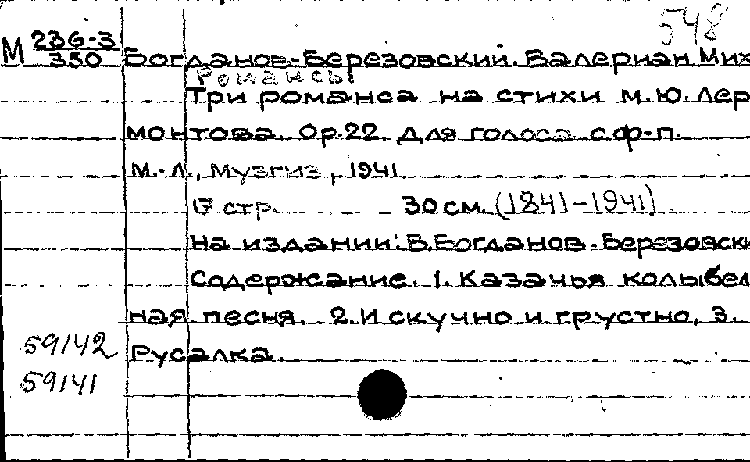 548
М 236-3/350 Богданов-Березовский. Валериан Мих
Романсы
Три романса на стихи М.Ю. Лер
монтова. Ор.22 для голоса с ф-п.
М.-Л., Музгиз, 1941
17 стр. 30 см. (1841-1941)
На издании: В.Богданов-Березовски
Содержание. 1. Казачья колыбел
ная песня. 2. И скучно и грустно. 3.
59142 Русалка.
59141